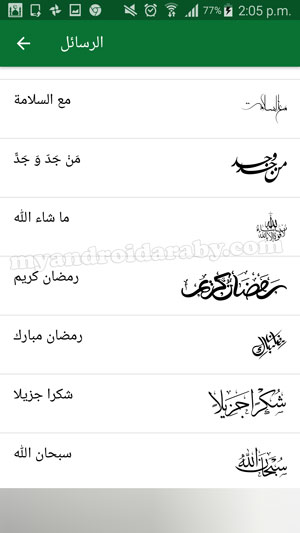 77% 2:05 p.m.
الرسائل
مع السلامة
مع السلامة
مَنْ جَدَ وَ جَدَّ
من جد وجد
ما شاء الله
myandroidaraby.com
رمضان كريم
رمضان كريم
رمضان مبارك
شكرا جزيلا
شُكراً جَزيلاً
سبحان الله
سُبْحَانَ اللهِ